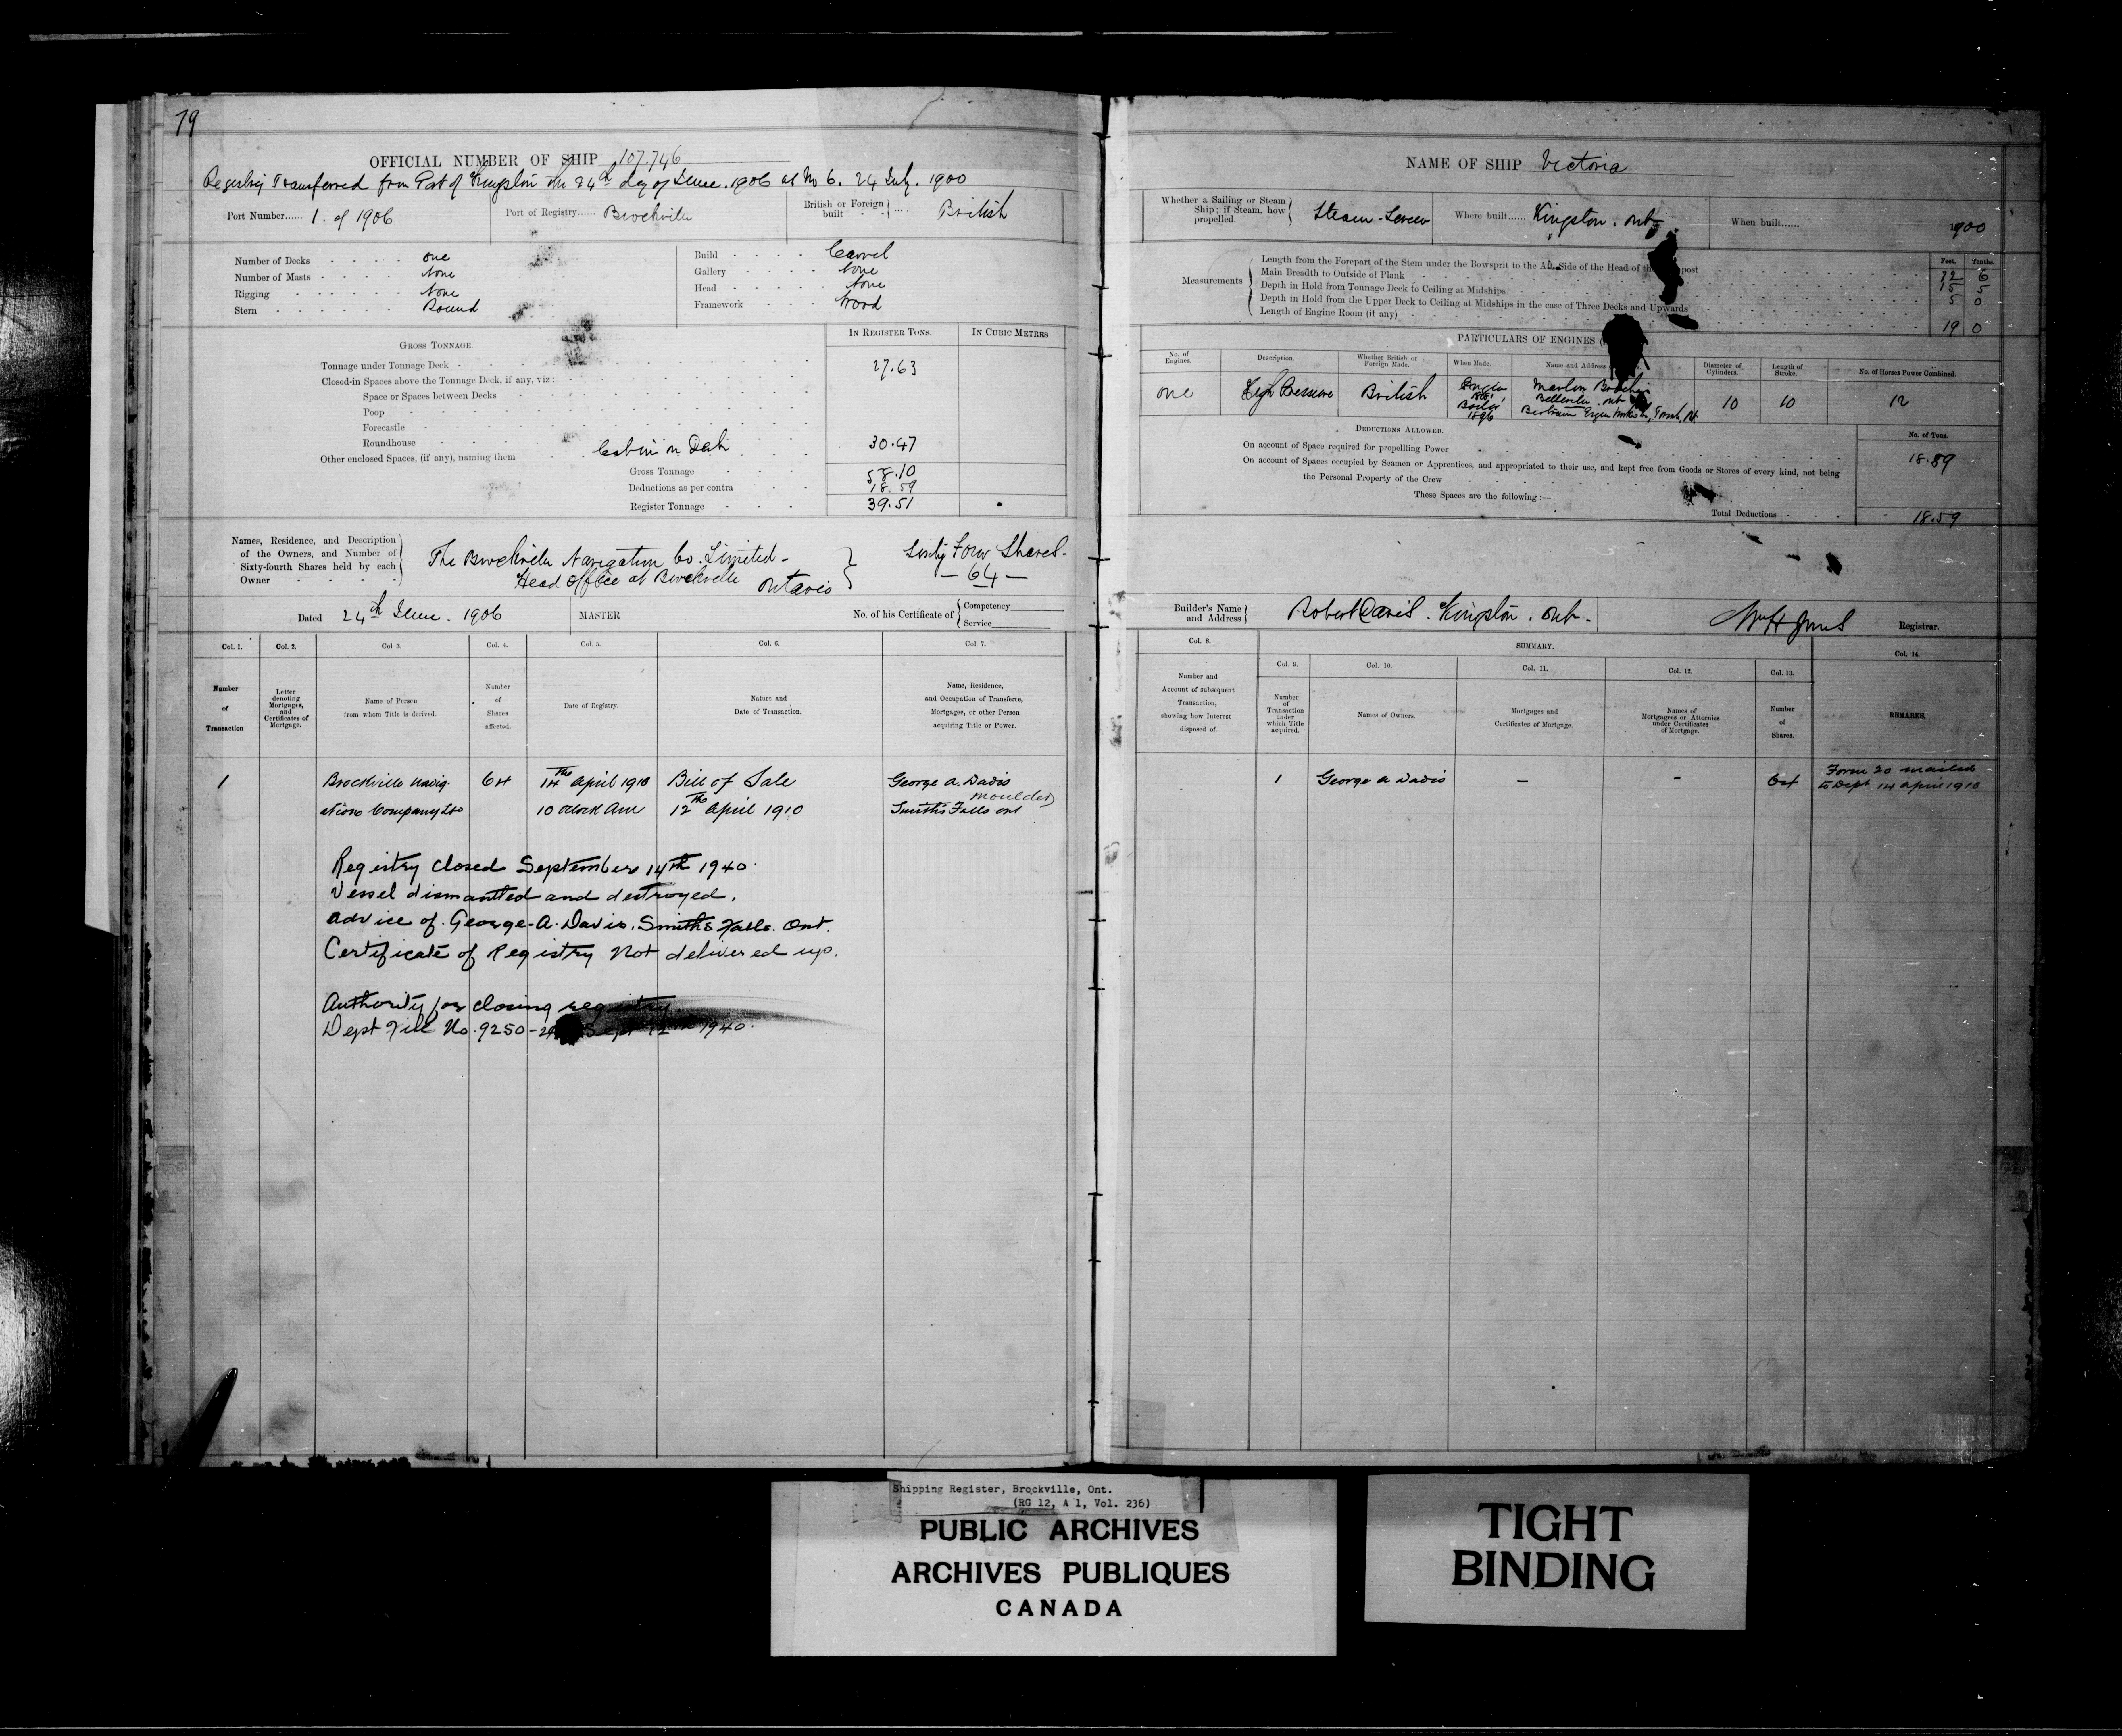 79
OFFICIAL NUMBER OF SHIP 107.746
Registry Transferred from Port of Kingston the 24th day of June. 1906 at No 6. 24 July. 1900
Port Number...... 1. of 1906 Port of Registry...... Brockville British or Foreign built British
Number of Decks one
Number of Masts None
Rigging None
Stern Round
Build Carvel
Gallery None
Head None
Framework Wood
IN REGISTER TONS. IN CUBIC METRES
GROSS TONNAGE.
Tonnage under Tonnage Deck 27.63
Closed-in Spaces above the Tonnage Deck, if any, viz:
Space or Spaces between Decks
Poop
Forecastle
Roundhouse
Other enclosed Spaces, (if any), naming them Cabin on Deck 30.47
Gross Tonnage 58.10
Deductions as per contra 18.59
Register Tonnage 39.51
Names, Residence, and Description
of the Owners, and Number of
Sixty-fourth Shares held by each
Owner
The Brockville Navigation Co. Limited.
Head office at Brockville
Ontario
Sixty Four Shares.
— 64 —
Dated 24th June. 1906 MASTER No. of his Certificate of { Competency
Service
Col. 1. Col. 2. Col 3. Col. 4. Col. 5. Col. 6. Col. 7.
Number of Transaction
Letter denoting Mortgages, and Certificates of Mortgage.
Name of Person from whom Title is derived.
Number of Shares affected.
Date of Registry.
Nature and Date of Transaction.
Name, Residence, and Occupation of Transferee, Mortgagee, or other Person acquiring Title or Power.
1 Brockville Navig- 64 14th April 1910 Bill of Sale George A. Davis
ation Company Ltd 10 oclock Am 12th April 1910 moulder
Smiths Falls ont
Registry closed September 14th 1940.
Vessel dismantled and destroyed.
advice of George-A-Davis. Smiths Falls. Ont.
Certificate of Registry Not delivered up.
Authority for closing registry
Dept File No. 9250- Sept 12th 1940.
NAME OF SHIP Victoria
Whether a Sailing or Steam
Ship; if Steam, how
propelled.
Steam-Screw Where built...... Kingston. Ont. When built...... 1900
Feet. tenths.
Measurements
Length from the Forepart of the Stem under the Bowsprit to the Aft Side of the Head of the post 72 6
Main Breadth to Outside of Plank 15 5
Depth in Hold from Tonnage Deck to Ceiling at Midships 5 0
Depth in Hold from the Upper Deck to Ceiling at Midships in the case of Three Decks and Upwards
Length of Engine Room (if any) 19 0
PARTICULARS OF ENGINES
No. of Engines. Description. Whether British or Foreign Made. When Made. Name and Address Diameter of Cylinders. Length of Stroke. No. of Horses Power Combined.
one High Pressure British Engine Boiler 1896 Belleville. Ont 10 10 12
DEDUCTIONS ALLOWED. No. of Tons.
On account of Space required for propellling Power 18.59
On account of Spaces occupied by Seamen or Apprentices, and appropriated to their use, and kept free from Goods or Stores of every kind, not being
the Personal Property of the Crew
These Spaces are the following :—
Total Deductions 18.59
Builder's Name
and Address
Robert Davis. Kingston. Ont. Registrar.
Col. 8. SUMMARY. Col. 14.
Col. 9. Col. 10. Col. 11. Col. 12. Col. 13.
Number and Account of subsequent Transaction, showing how Interest disposed of.
Number of Transaction under which Title acquired.
Names of Owners.
Mortgages and Certificates of Mortgage.
Names of Mortgagees or Attornies under Certificates of Mortgage.
Number of Shares.
REMARKS.
1 George A Davis — - 64 Form 20 mailed
to Dept 14 April 1910
Shipping Register, Brockville, Ont.
(RG 12, A 1, Vol. 236)
PUBLIC ARCHIVES
ARCHIVES PUBLIQUES
CANADA
TIGHT
BINDING